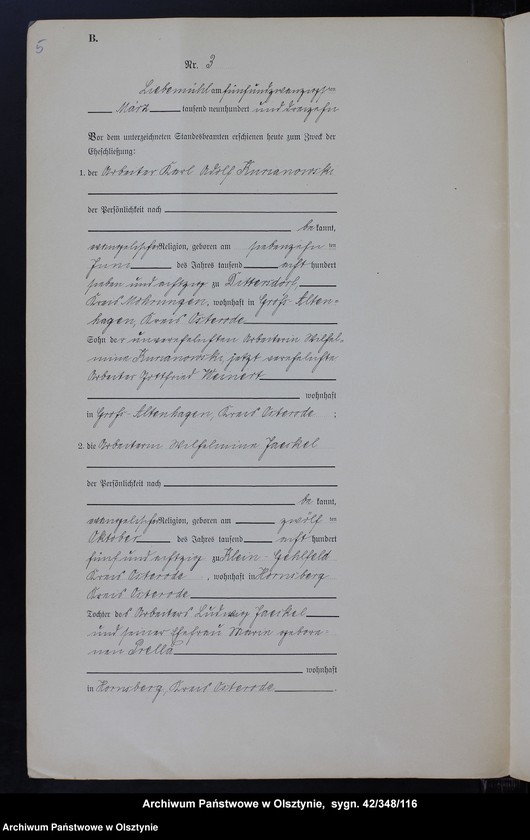 5
B.
Nr. 3
Liebemühl am fünfundzwanzigsten
März tausend neunhundert und dreizehn
Vor dem unterzeichneten Standesbeamten erschienen heute zum Zweck der
Eheschließung:
1. der Arbeiter Karl Adolf
der Persönlichkeit nach
be kannt,
evangelischer Religion, geboren am siebenzehnten
Juni des Jahres tausend acht hundert
sieben und achtzig zu Dittersdorf,
Kreis Mohrungen, wohnhaft in Groß-Alten-
hagen, Kreis Osterode
Sohn der unverehelichten Arbeiterin Wilhel-
mine jetzt verehelichte
Arbeiter Gottfried Weinert
wohnhaft
in Groß-Altenhagen, Kreis Osterode ;
2. die Arbeiterin Wilhelmine Jaeckel
der Persönlichkeit nach
be kannt,
evangelischer Religion, geboren am zwölften
Oktober des Jahres tausend acht hundert
fünf und achtzig zu Klein-Gehlfeld
Kreis Osterode , wohnhaft in Hornsberg
Kreis Osterode
Tochter des Arbeiters Ludwig Jaeckel
und seiner Ehefrau Marie gebore-
nen Prella
wohnhaft
in Hornsberg, Kreis Osterode .
Archiwum Państwowe w Olsztynie, sygn. 42/348/116
Archiwum Państwowe w Olsztynie